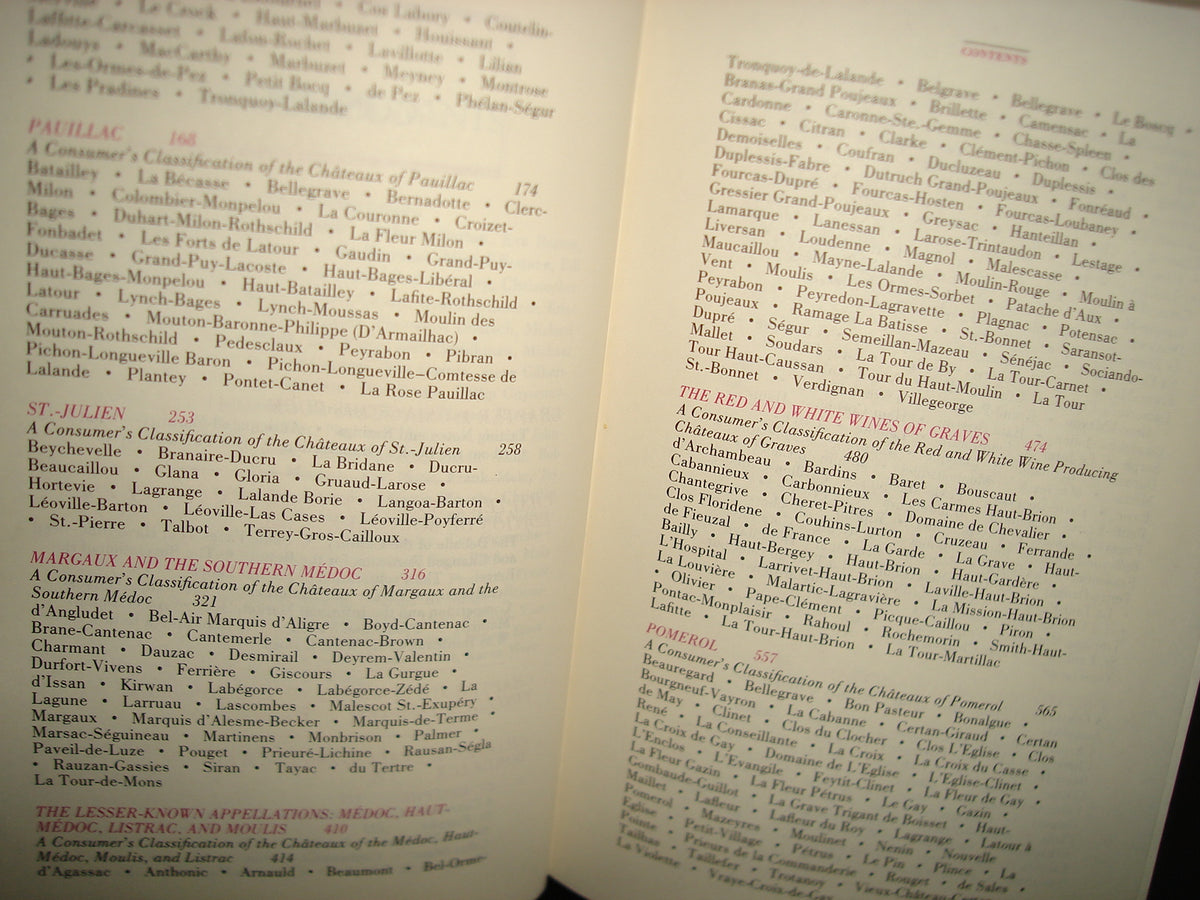 Le Crock • Haut-Marbuzet • Houissant •
Laffitte-Carcasset • Lafon-Rochet • Lavillotte • Lilian
Ladouys • MacCarthy • Marbuzet • Meyney • Montrose
• Les-Ormes-de-Pez • Petit Bocq • de Pez • Phélan-Ségur
• Les Pradines • Tronquoy-Lalande
PAUILLAC 168
A Consumer's Classification of the Châteaux of Pauillac 174
Batailley • La Bécasse • Bellegrave • Bernadotte • Clerc-
Milon • Colombier-Monpelou • La Couronne • Croizet-
Bages • Duhart-Milon-Rothschild • La Fleur Milon •
Fonbadet • Les Forts de Latour • Gaudin • Grand-Puy-
Ducasse • Grand-Puy-Lacoste • Haut-Bages-Libéral •
Haut-Bages-Monpelou • Haut-Batailley • Lafite-Rothschild •
Latour • Lynch-Bages • Lynch-Moussas • Moulin des
Carruades • Mouton-Baronne-Philippe (D'Armailhac) •
Mouton-Rothschild • Pedesclaux • Peyrabon • Pibran •
Pichon-Longueville Baron • Pichon-Longueville–Comtesse de
Lalande • Plantey • Pontet-Canet • La Rose Pauillac
ST.-JULIEN 253
A Consumer's Classification of the Châteaux of St.-Julien 258
Beychevelle • Branaire-Ducru • La Bridane • Ducru-
Beaucaillou • Glana • Gloria • Gruaud-Larose •
Hortevie • Lagrange • Lalande Borie • Langoa-Barton •
Léoville-Barton • Léoville-Las Cases • Léoville-Poyferré
• St.-Pierre • Talbot • Terrey-Gros-Cailloux
MARGAUX AND THE SOUTHERN MÉDOC 316
A Consumer's Classification of the Châteaux of Margaux and the
Southern Médoc 321
d'Angludet • Bel-Air Marquis d'Aligre • Boyd-Cantenac •
Brane-Cantenac • Cantemerle • Cantenac-Brown •
Charmant • Dauzac • Desmirail • Deyrem-Valentin •
Durfort-Vivens • Ferrière • Giscours • La Gurgue •
d'Issan • Kirwan • Labégorce • Labégorce-Zédé • La
Lagune • Larruau • Lascombes • Malescot St.-Exupéry •
Margaux • Marquis d'Alesme-Becker • Marquis-de-Terme •
Marsac-Séguineau • Martinens • Monbrison • Palmer •
Paveil-de-Luze • Pouget • Prieuré-Lichine • Rausan-Ségla
• Rauzan-Gassies • Siran • Tayac • du Tertre •
La Tour-de-Mons
THE LESSER-KNOWN APPELLATIONS: MÉDOC, HAUT-
MÉDOC, LISTRAC, AND MOULIS 410
A Consumer's Classification of the Châteaux of the Médoc, Haut-
Médoc, Moulis, and Listrac 414
d'Agassac • Anthonic • Arnauld • Beaumont • Bel-Orme-
CONTENTS
Tronquoy-de-Lalande • Belgrave • Bellegrave • Le Boscq •
Branas-Grand Poujeaux • Brillette • Camensac • La
Cardonne • Caronne-Ste.-Gemme • Chasse-Spleen •
Cissac • Citran • Clarke • Clément-Pichon • Clos des
Demoiselles • Coufran • Ducluzeau • Duplessis •
Duplessis-Fabre • Dutruch Grand-Poujeaux • Fonréaud •
Fourcas-Dupré • Fourcas-Hosten • Fourcas-Loubaney •
Gressier Grand-Poujeaux • Greysac • Hanteillan •
Lamarque • Lanessan • Larose-Trintaudon • Lestage •
Liversan • Loudenne • Magnol • Malescasse •
Maucaillou • Mayne-Lalande • Moulin-Rouge • Moulin à
Vent • Moulis • Les Ormes-Sorbet • Patache d'Aux •
Peyrabon • Peyredon-Lagravette • Plagnac • Potensac •
Poujeaux • Ramage La Batisse • St.-Bonnet • Saransot-
Dupré • Ségur • Semeillan-Mazeau • Sénéjac • Sociando-
Mallet • Soudars • La Tour de By • La Tour-Carnet •
Tour Haut-Caussan • Tour du Haut-Moulin • La Tour
St.-Bonnet • Verdignan • Villegeorge
THE RED AND WHITE WINES OF GRAVES 474
A Consumer's Classification of the Red and White Wine Producing
Châteaux of Graves 480
d'Archambeau • Bardins • Baret • Bouscaut •
Cabannieux • Carbonnieux • Les Carmes Haut-Brion •
Chantegrive • Cheret-Pitres • Domaine de Chevalier •
Clos Floridene • Couhins-Lurton • Cruzeau • Ferrande •
de Fieuzal • de France • La Garde • La Grave • Haut-
Bailly • Haut-Bergey • Haut-Brion • Haut-Gardère •
L'Hospital • Larrivet-Haut-Brion • Laville-Haut-Brion •
La Louvière • Malartic-Lagravière • La Mission-Haut-Brion
• Olivier • Pape-Clément • Picque-Caillou • Piron •
Pontac-Monplaisir • Rahoul • Rochemorin • Smith-Haut-
Lafitte • La Tour-Haut-Brion • La Tour-Martillac
POMEROL 557
A Consumer's Classification of the Châteaux of Pomerol 565
Beauregard • Bellegrave • Bon Pasteur • Bonalgue •
Bourgneuf-Vayron • La Cabanne • Certan-Giraud • Certan
de May • Clinet • Clos du Clocher • Clos L'Eglise • Clos
René • La Conseillante • La Croix • La Croix du Casse •
La Croix de Gay • Domaine de L'Eglise • L'Eglise-Clinet •
L'Enclos • L'Evangile • Feytit-Clinet • La Fleur de Gay •
La Fleur Gazin • La Fleur Pétrus • Le Gay • Gazin •
Gombaude-Guillot • La Grave Trigant de Boisset • Haut-
Maillet • Lafleur • Lafleur du Roy • Lagrange • Latour à
Pomerol • Mazeyres • Moulinet • Nenin • Nouvelle
Eglise • Petit-Village • Pétrus • Le Pin • Plince • La
Pointe • Prieurs de la Commanderie • Rouget • de Sales •
Tailhas • Taillefer • Trotanoy • Vieux-Château-Certan
La Violette • Vraye-Croix-de-Gay